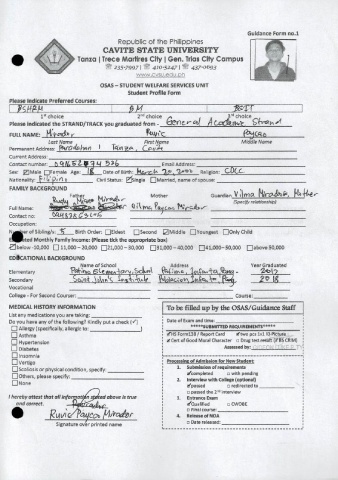 Guidance Form no.1
Republic of the Philippines
CAVITE STATE UNIVERSITY
Tanza | Trece Martires City | Gen. Trias City Campus
www.cvsu.edu.ph
OSAS – STUDENT WELFARE SERVICES UNIT
Student Profile Form
Please Indicate Preferred Courses:
BSHRM BM BSIT
1st choice 2nd choice 3rd choice
Please indicated the STRAND/TRACK you graduated from: General Academic Strand
FULL NAME: Mirador Ruvic Paycao
Last Name First Name Middle Name
Permanent Address: 1 Tanza, Cavite
Current Address:
Contact number: Email Address:
Sex: Male Female Age: 18 Date of Birth: March 20, 2000 Religion:
Nationality: Filipino Civil Status: Single Married, name of spouse:
FAMILY BACKGROUND
Father Mother Guardian: Vilma Mirador, Mother
(Specify relationship)
Full Name: Mirador Vilma Paycao Mirador
Contact no:
Occupation:
Number of Sibling/s: 5 Birth Order: Eldest Second Middle Youngest Only Child
Estimated Monthly Family Income: (Please tick the appropriate box)
below -10,000 11,000 – 20,000 21,000 – 30,000 31,000 – 40,000 41,000 – 50,000 above 50,000
EDUCATIONAL BACKGROUND
Name of School Address Year Graduated
Elementary Elementary School
Secondary Saint John's Institute 2018
Vocational
College - For Second Course: Course:
MEDICAL HISTORY INFORMATION
List any medications you are taking:
Do you have any of the following? Kindly put a check (✓)
Allergy (specifically, allergic to:
Asthma
Hypertension
Diabetes
Insomnia
Vertigo
Scoliosis or physical condition, specify:
Others, please specify:
None
I hereby attest that all information stated above is true
and correct.
Ruvic Paycao Mirador
Signature over printed name
To be filled up by the OSAS/Guidance Staff
Date of Exam and time:
*****SUBMITTED REQUIREMENTS*****
HS Form138 / Report Card two pcs 1x1 ID Picture
Cert of Good Moral Character Drug test result (if BS CRIM)
Assessed by:
Processing of Admission for New Student:
1. Submission of requirements
completed with pending
2. Interview with College (optional)
passed redirected to
passed the 2nd interview
3. Entrance Exam
Qualified CWOBE
Final course:
4. Release of NOA
Date released: